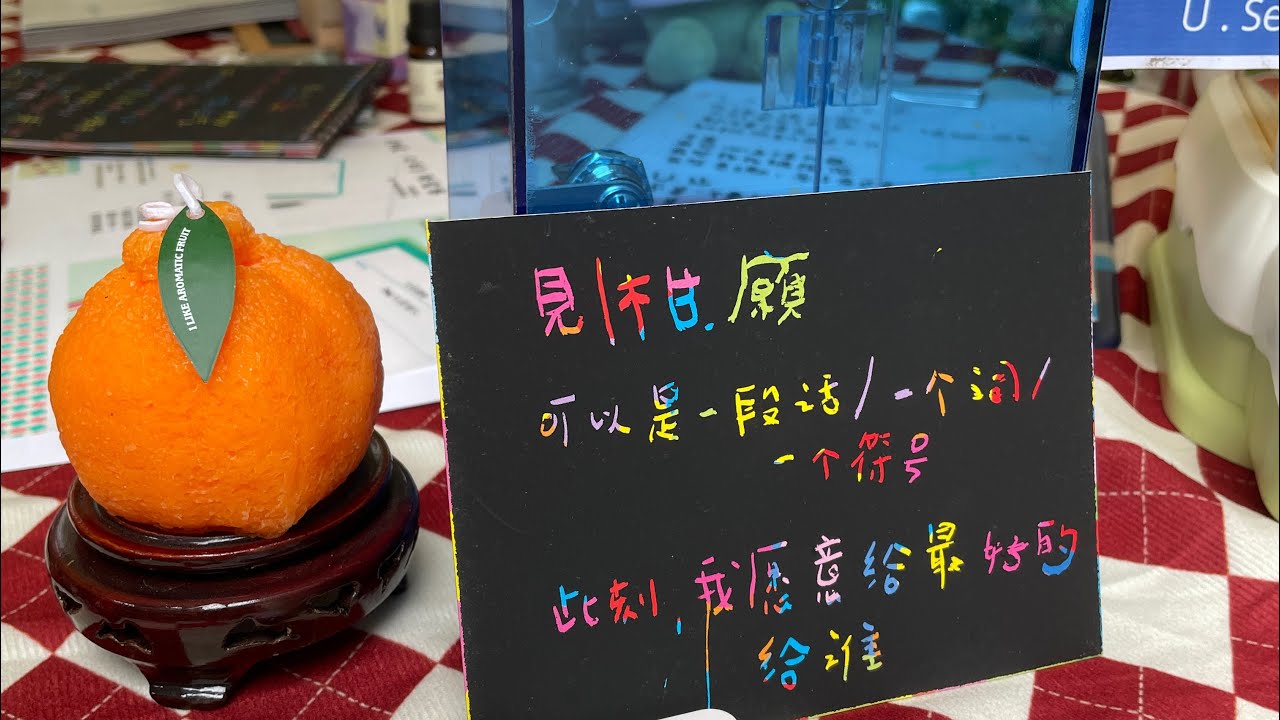 U . Se
I LIKE AROMATIC FRUIT
見|柑.願
可以是一段话/一个词/
一个符号
此刻,我愿意给最好的
给谁